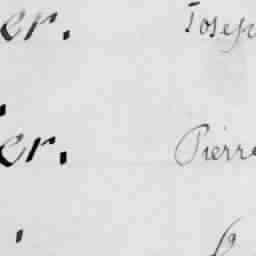 er. Josep
er. Pierre